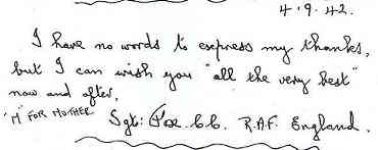 4.9.42.
I have no words to express my thanks,
but I can wish you "all the very best"
now and after.
"M" FOR MOTHER. Sgt: Fox. C.C. R.A.F. England.